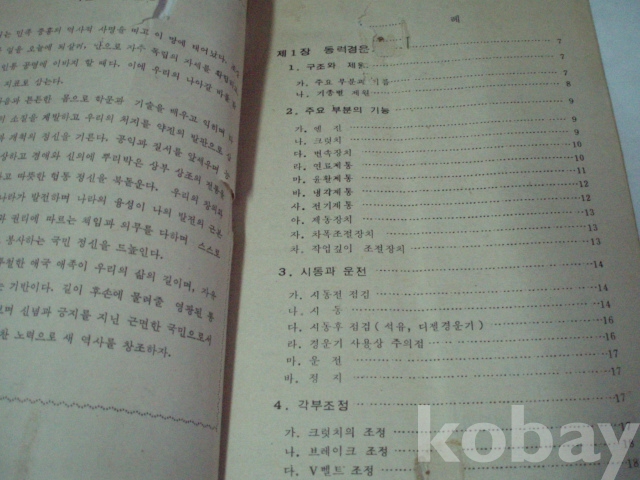 는 민족 중흥의 역사적 사명을 띠고 이 땅에 태어났다.
빛난 얼을 오늘에 되살려, 안으로 자주 독립의 자세를 확립하고
인류 공영에 이바지할 때다. 이에 우리의 나아갈 바를
지표로 삼는다.
마음과 튼튼한 몸으로 학문과 기술을 배우고 익히며
의 소질을 계발하고 우리의 처지를 약진의 발판으로
과 개척의 정신을 기른다. 공익과 질서를 앞세우며
숭상하고 경애와 신의에 뿌리박은 상부 상조의 전통을
로 따뜻한 협동 정신을 북돋운다. 우리의 창의와
나라가 발전하며 나라의 융성이 나의 발전의 근본
과 권리에 따르는 책임과 의무를 다하며 스스로
봉사하는 국민 정신을 드높인다.
투철한 애국 애족이 우리의 삶의 길이며, 자유
는 기반이다. 길이 후손에 물려줄 영광된 통
며 신념과 긍지를 지닌 근면한 국민으로서
한 노력으로 새 역사를 창조하자.
제
제1장 동력경운 7
1. 구조와 계통 7
가. 주요 부분의 이름 7
나. 기종별 제원 8
2. 주요 부분의 기능 9
가. 엔진 9
나. 크릿치 9
다. 변속장치 10
라. 연료계통 10
마. 윤활계통 11
바. 냉각계통 12
사. 전기계통 12
아. 제동장치 13
자. 차폭조절장치 13
차. 작업깊이 조절장치 13
3. 시동과 운전 14
가. 시동전 점검 14
나. 시동 14
다. 시동후 점검(석유, 디젤경운기) 16
라. 경운기 사용상 주의점 16
마. 운전 17
바. 정지 17
4. 각부조정 17
가. 크릿치의 조정 17
나. 브레이크 조정 18
다. V벨트 조정 18
kobay